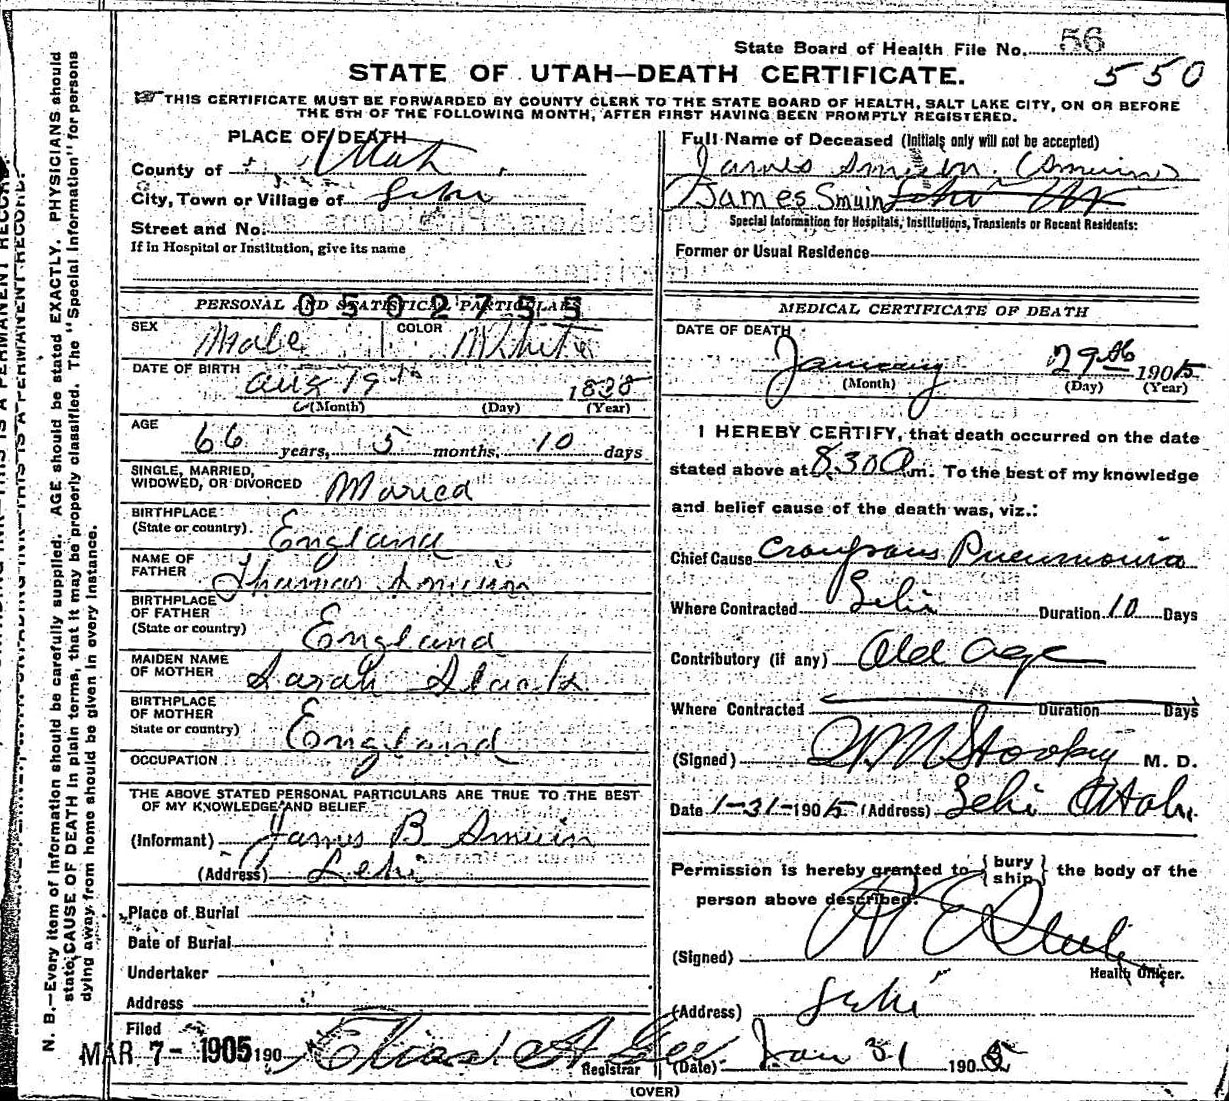 State Board of Health File No. 56
550
STATE OF UTAH—DEATH CERTIFICATE.
THIS CERTIFICATE MUST BE FORWARDED BY COUNTY CLERK TO THE STATE BOARD OF HEALTH, SALT LAKE CITY, ON OR BEFORE
THE 5TH OF THE FOLLOWING MONTH, AFTER FIRST HAVING BEEN PROMPTLY REGISTERED.
PLACE OF DEATH
County of Utah
City, Town or Village of Lehi
Street and No.
If in Hospital or Institution, give its name
PERSONAL AND STATISTICAL PARTICULARS
0502755
SEX Male COLOR White
DATE OF BIRTH Aug 19th 1838
(Month) (Day) (Year)
AGE
66 years, 5 months, 10 days
SINGLE, MARRIED,
WIDOWED, OR DIVORCED Maried
BIRTHPLACE
(State or country) England
NAME OF
FATHER Thomas Smuin
BIRTHPLACE
OF FATHER
(State or country) England
MAIDEN NAME
OF MOTHER Sarah
BIRTHPLACE
OF MOTHER
State or country) England
OCCUPATION
THE ABOVE STATED PERSONAL PARTICULARS ARE TRUE TO THE BEST
OF MY KNOWLEDGE AND BELIEF
(Informant) James B Smuin
(Address) Lehi
Place of Burial
Date of Burial
Undertaker
Address
Filed
MAR 7- 1905 190
Registrar
Full Name of Deceased (Initials only will not be accepted)
James Smuin (Smuin)
James Smuin Lehi
Special Information for Hospitals, Institutions, Transients or Recent Residents:
Former or Usual Residence
MEDICAL CERTIFICATE OF DEATH
DATE OF DEATH
January 29th 1905
(Month) (Day) (Year)
I HEREBY CERTIFY, that death occurred on the date
stated above at 8.30 a m. To the best of my knowledge
and belief cause of the death was, viz.:
Chief Cause Croupous Pneumonia
Where Contracted Lehi Duration 10 Days
Contributory (if any) Old Age
Where Contracted Duration Days
(Signed) Stookey M. D.
Date 1-31-1905 (Address) Lehi Utah
Permission is hereby granted to {bury
ship} the body of the
person above described.
(Signed)
Health Officer.
(Address) Lehi
(Date) Jan 31 1905
(OVER)
N. B.—Every item of information should be carefully supplied. AGE should be stated EXACTLY. PHYSICIANS should
state CAUSE OF DEATH in plain terms, that it may be properly classified. The "Special Information" for persons
dying away from home should be given in every instance.